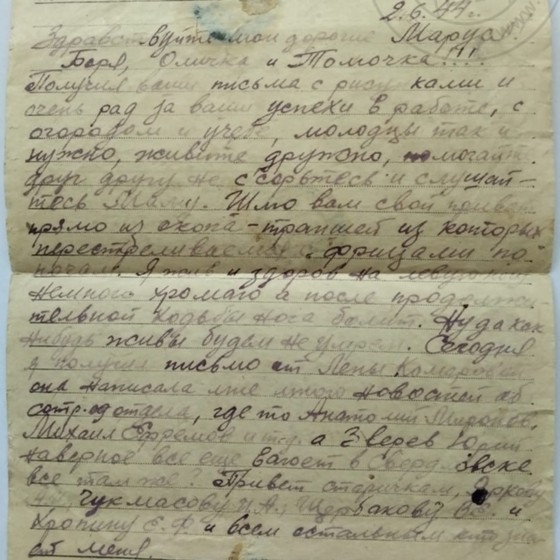 2.6.44г.
Здравствуйте мои дорогие Маруся
Боря, Оличка и Томочка!!!
Получил ваши письма с рисунками и
очень рад за ваши успехи в работе, с
огородом и учебе, молодцы так и
нужно, живите дружно, помогайте
друг другу не ссорьтесь и слушай-
тесь Маму. Шлю вам свой привет
прямо из окопа-траншей из которых
перестреливаемся с фрицами по
ночам. Я жив и здоров на левую ногу
немного хромаю а после продолжи
тельной ходьбы нога болит. Ну да как
нибудь живы будем не умрем. Сегодня
я получил письмо от Лены Комаровой
она написала мне много новостей об
сотр. отдела, где то Анатолий Миронов,
Михаил Ефремов и т.д. а Зверев Юрий
наверное все еще воюет в Свердловске
все там же? Привет старичкам,
Чукмасову И.А., Щербакову и
Кропину С.Ф. и всем остальным кто зна
ет меня.